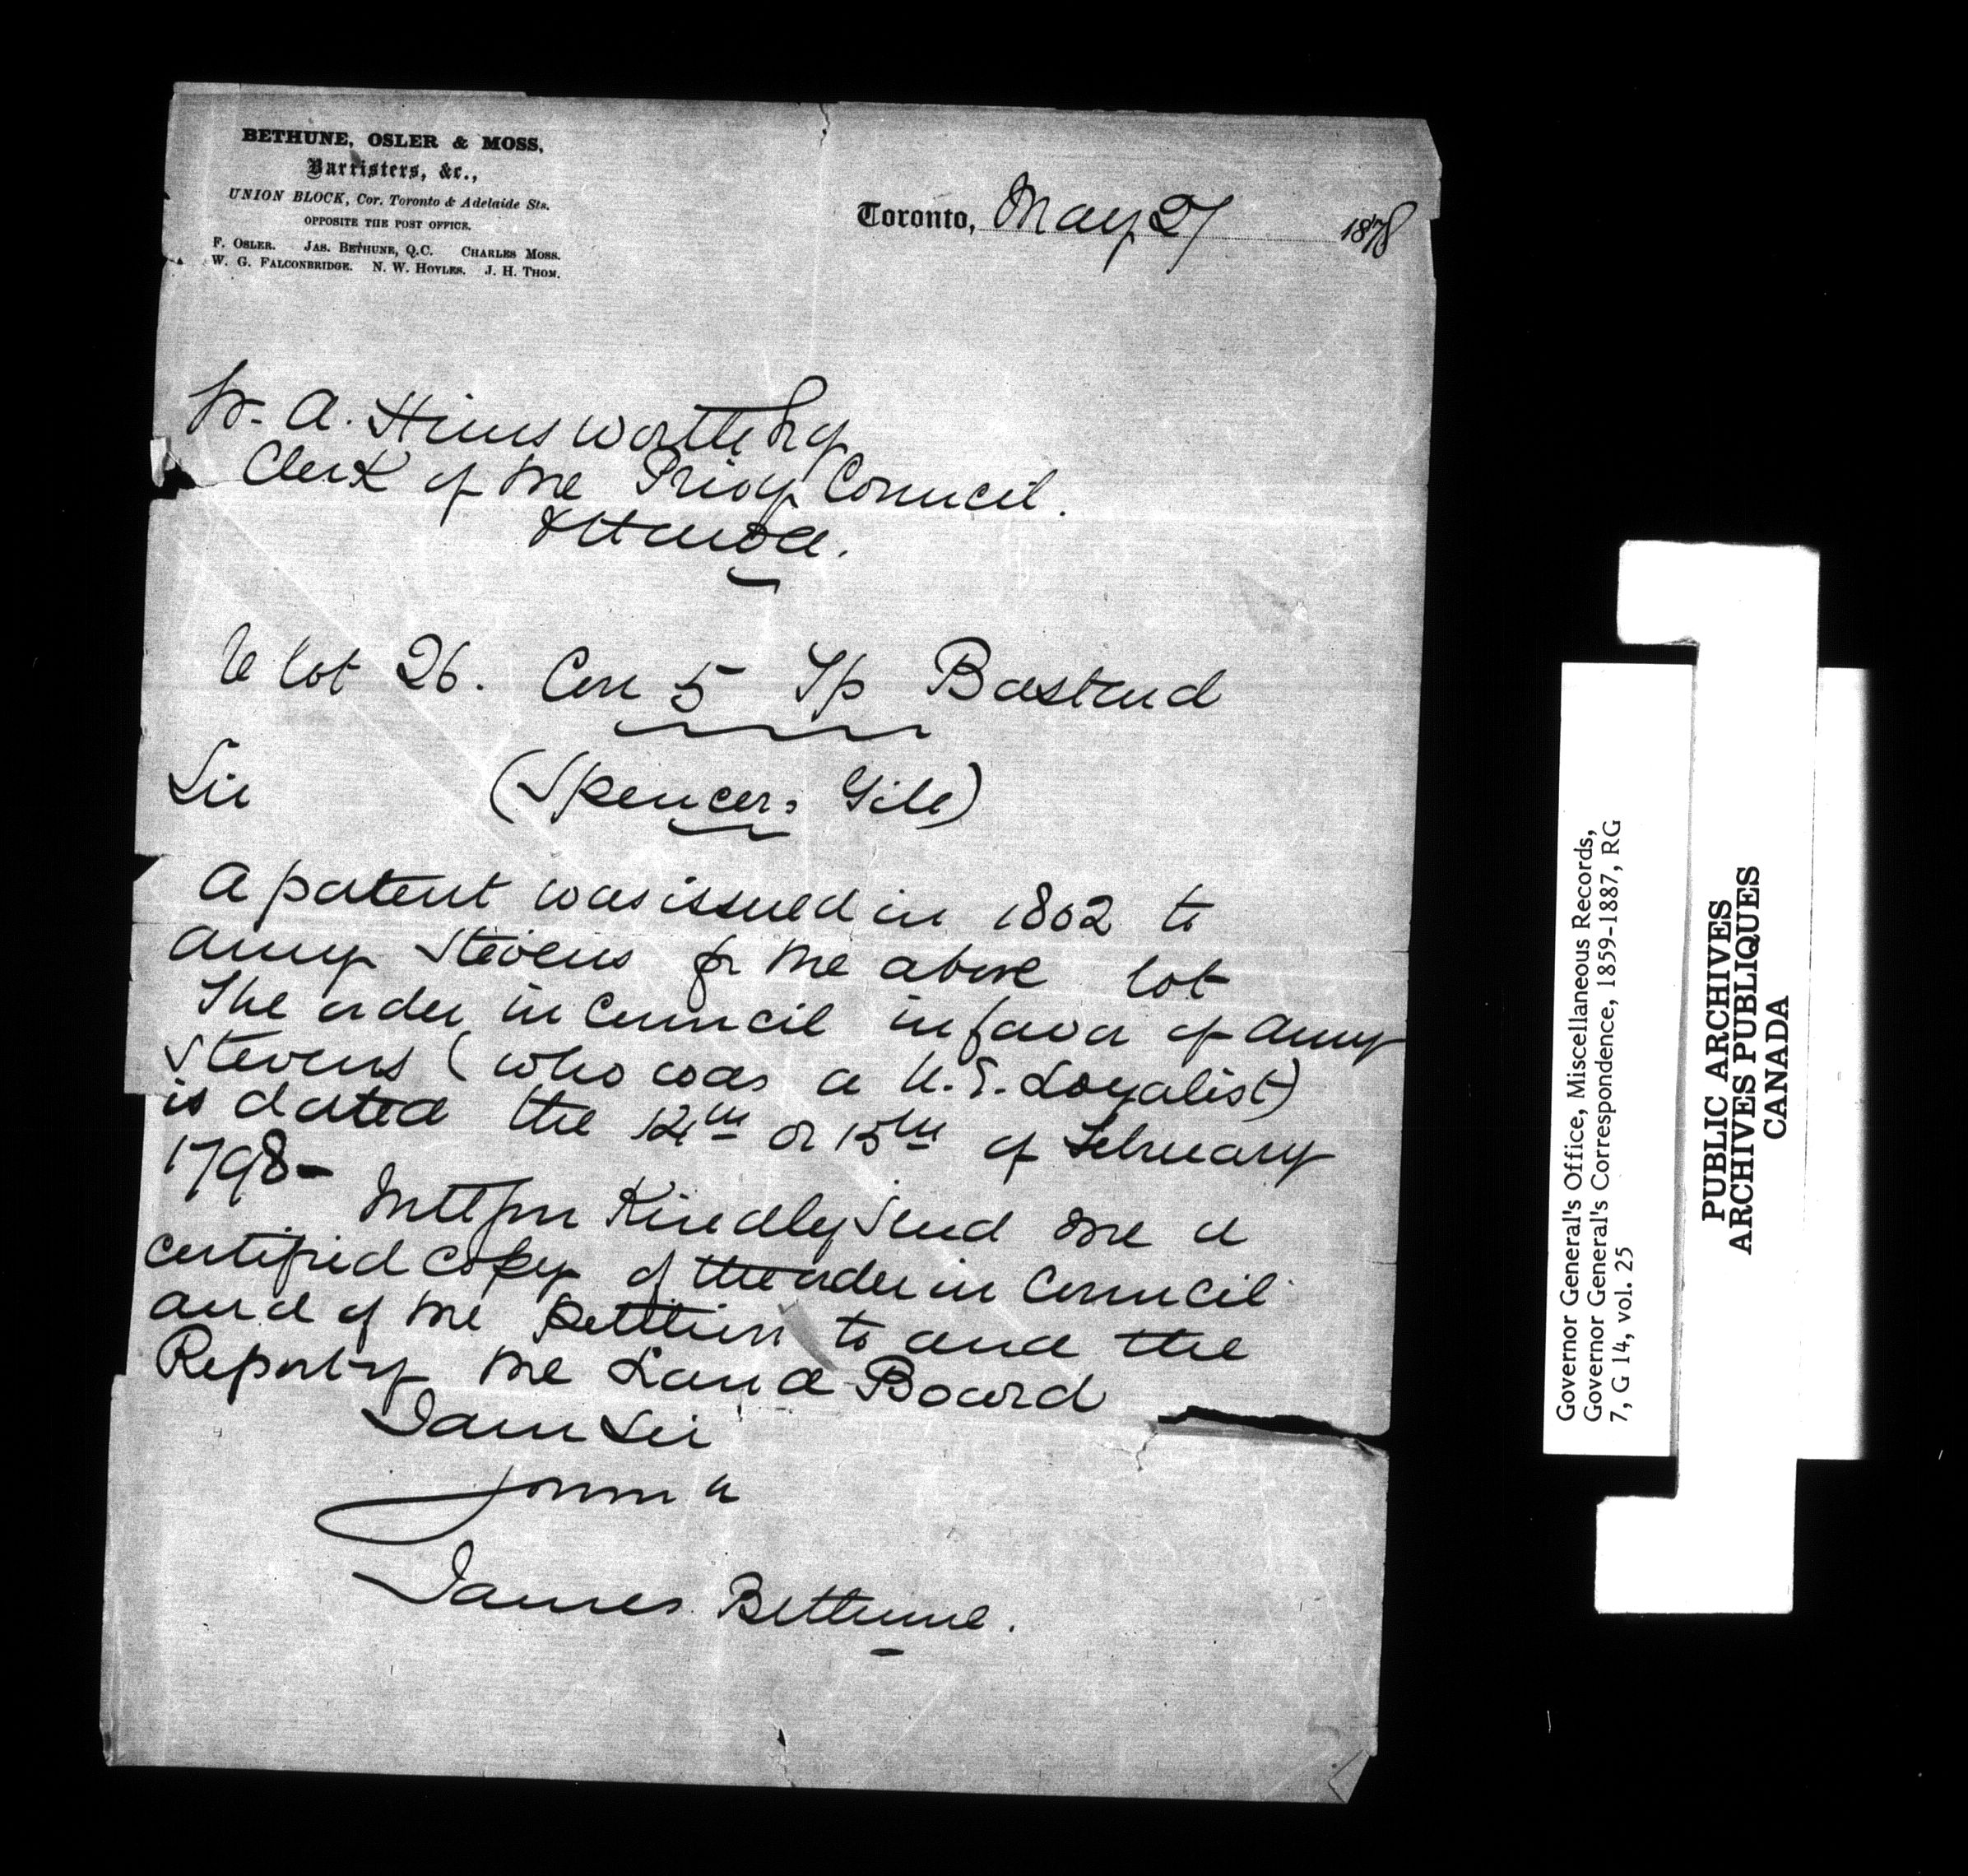 BETHUNE, OSLER & MOSS,
Barristers, &c.,
UNION BLOCK, Cor. Toronto & Adelaide Sts.
OPPOSITE THE POST OFFICE.
F. OSLER. JAS. BETHUNE, Q.C. CHARLES MOSS.
W. G. FALCONBRIDGE. N. W. HOYLES. J. H. THOM.
Toronto, May 27 1878
W. A. Himsworth Esq
Clerk of the Privy Council.
Ottawa.
lot 26. Con 5 Tp Bastard
Sir (Spencer, Gile)
A patent was issued in 1802 to
Amy Stevens for the above lot
The order in Council in favor of Amy
Stevens (who was a U.E. Loyalist)
is dated the 12th or 15th of February
1798-
Will you Kindly send me a
certified copy of the order in Council
and of the petition to and the
Report of the Land Board
I am Sir
Yours &
James Bethune.
Governor General's Office, Miscellaneous Records,
Governor General's Correspondence, 1859-1887, RG
7, G 14, vol. 25
PUBLIC ARCHIVES
ARCHIVES PUBLIQUES
CANADA